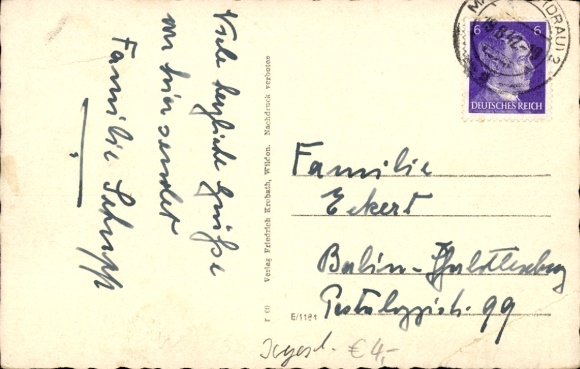 Viele herzliche Grüße
von hier sendet
Familie Schupp
r 60 Verlag Friedrich Krobath, Wildon. Nachdruck verboten
6 6
DEUTSCHES REICH
(DRAU) 2
Familie
Eckert
Berlin-Charlottenburg
Pestalozzistr. 99
E/1181
€ 4,-